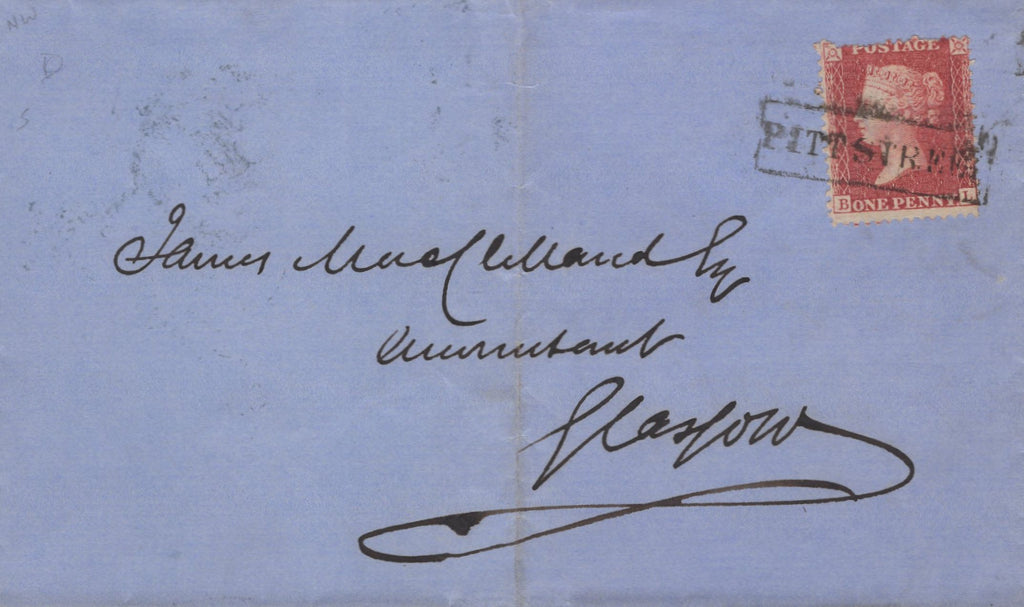 NW
D
S
POSTAGE
PITT STREET
B ONE PENNY L
James MacClelland Esq
Accountant
Glasgow